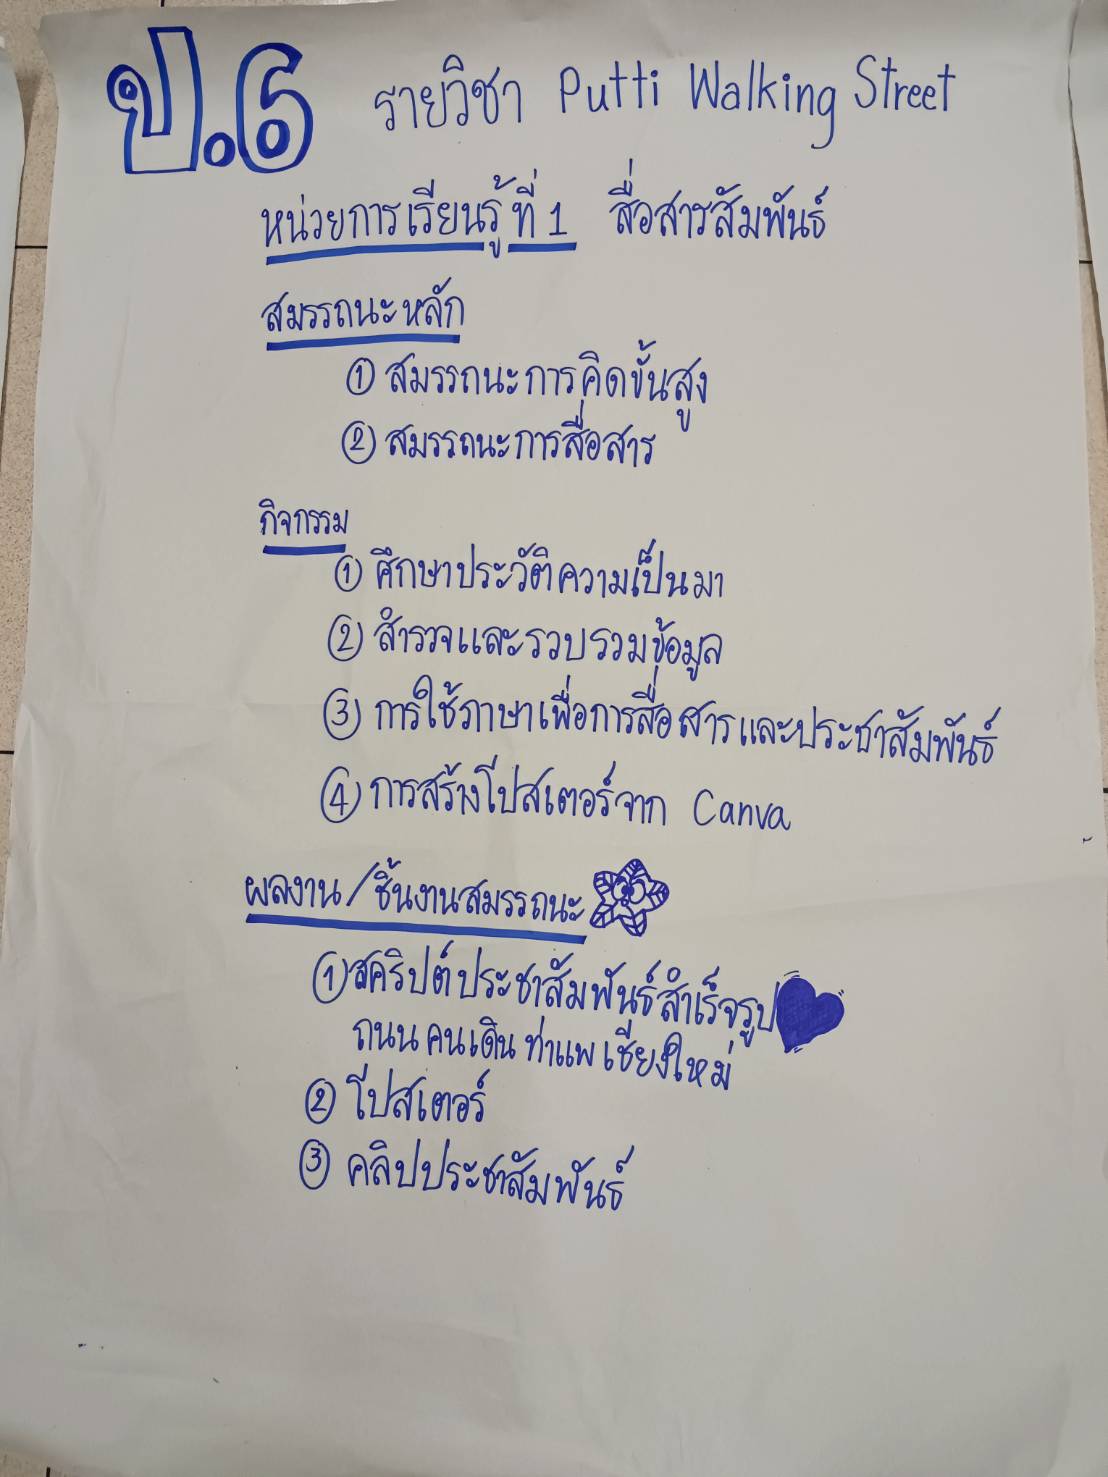 ป.6 รายวิชา Putti Walking Street
หน่วยการเรียนรู้ที่ 1 สื่อสารสัมพันธ์
สมรรถนะหลัก
① สมรรถนะการคิดขั้นสูง
② สมรรถนะการสื่อสาร
กิจกรรม
① ศึกษาประวัติความเป็นมา
② สำรวจและรวบรวมข้อมูล
③ การใช้ภาษาเพื่อการสื่อสารและประชาสัมพันธ์
④ การสร้างโปสเตอร์จาก Canva
ผลงาน/ชิ้นงานสมรรถนะ
① สคริปต์ประชาสัมพันธ์สำเร็จรูป
ถนนคนเดินท่าแพ เชียงใหม่
② โปสเตอร์
③ คลิปประชาสัมพันธ์